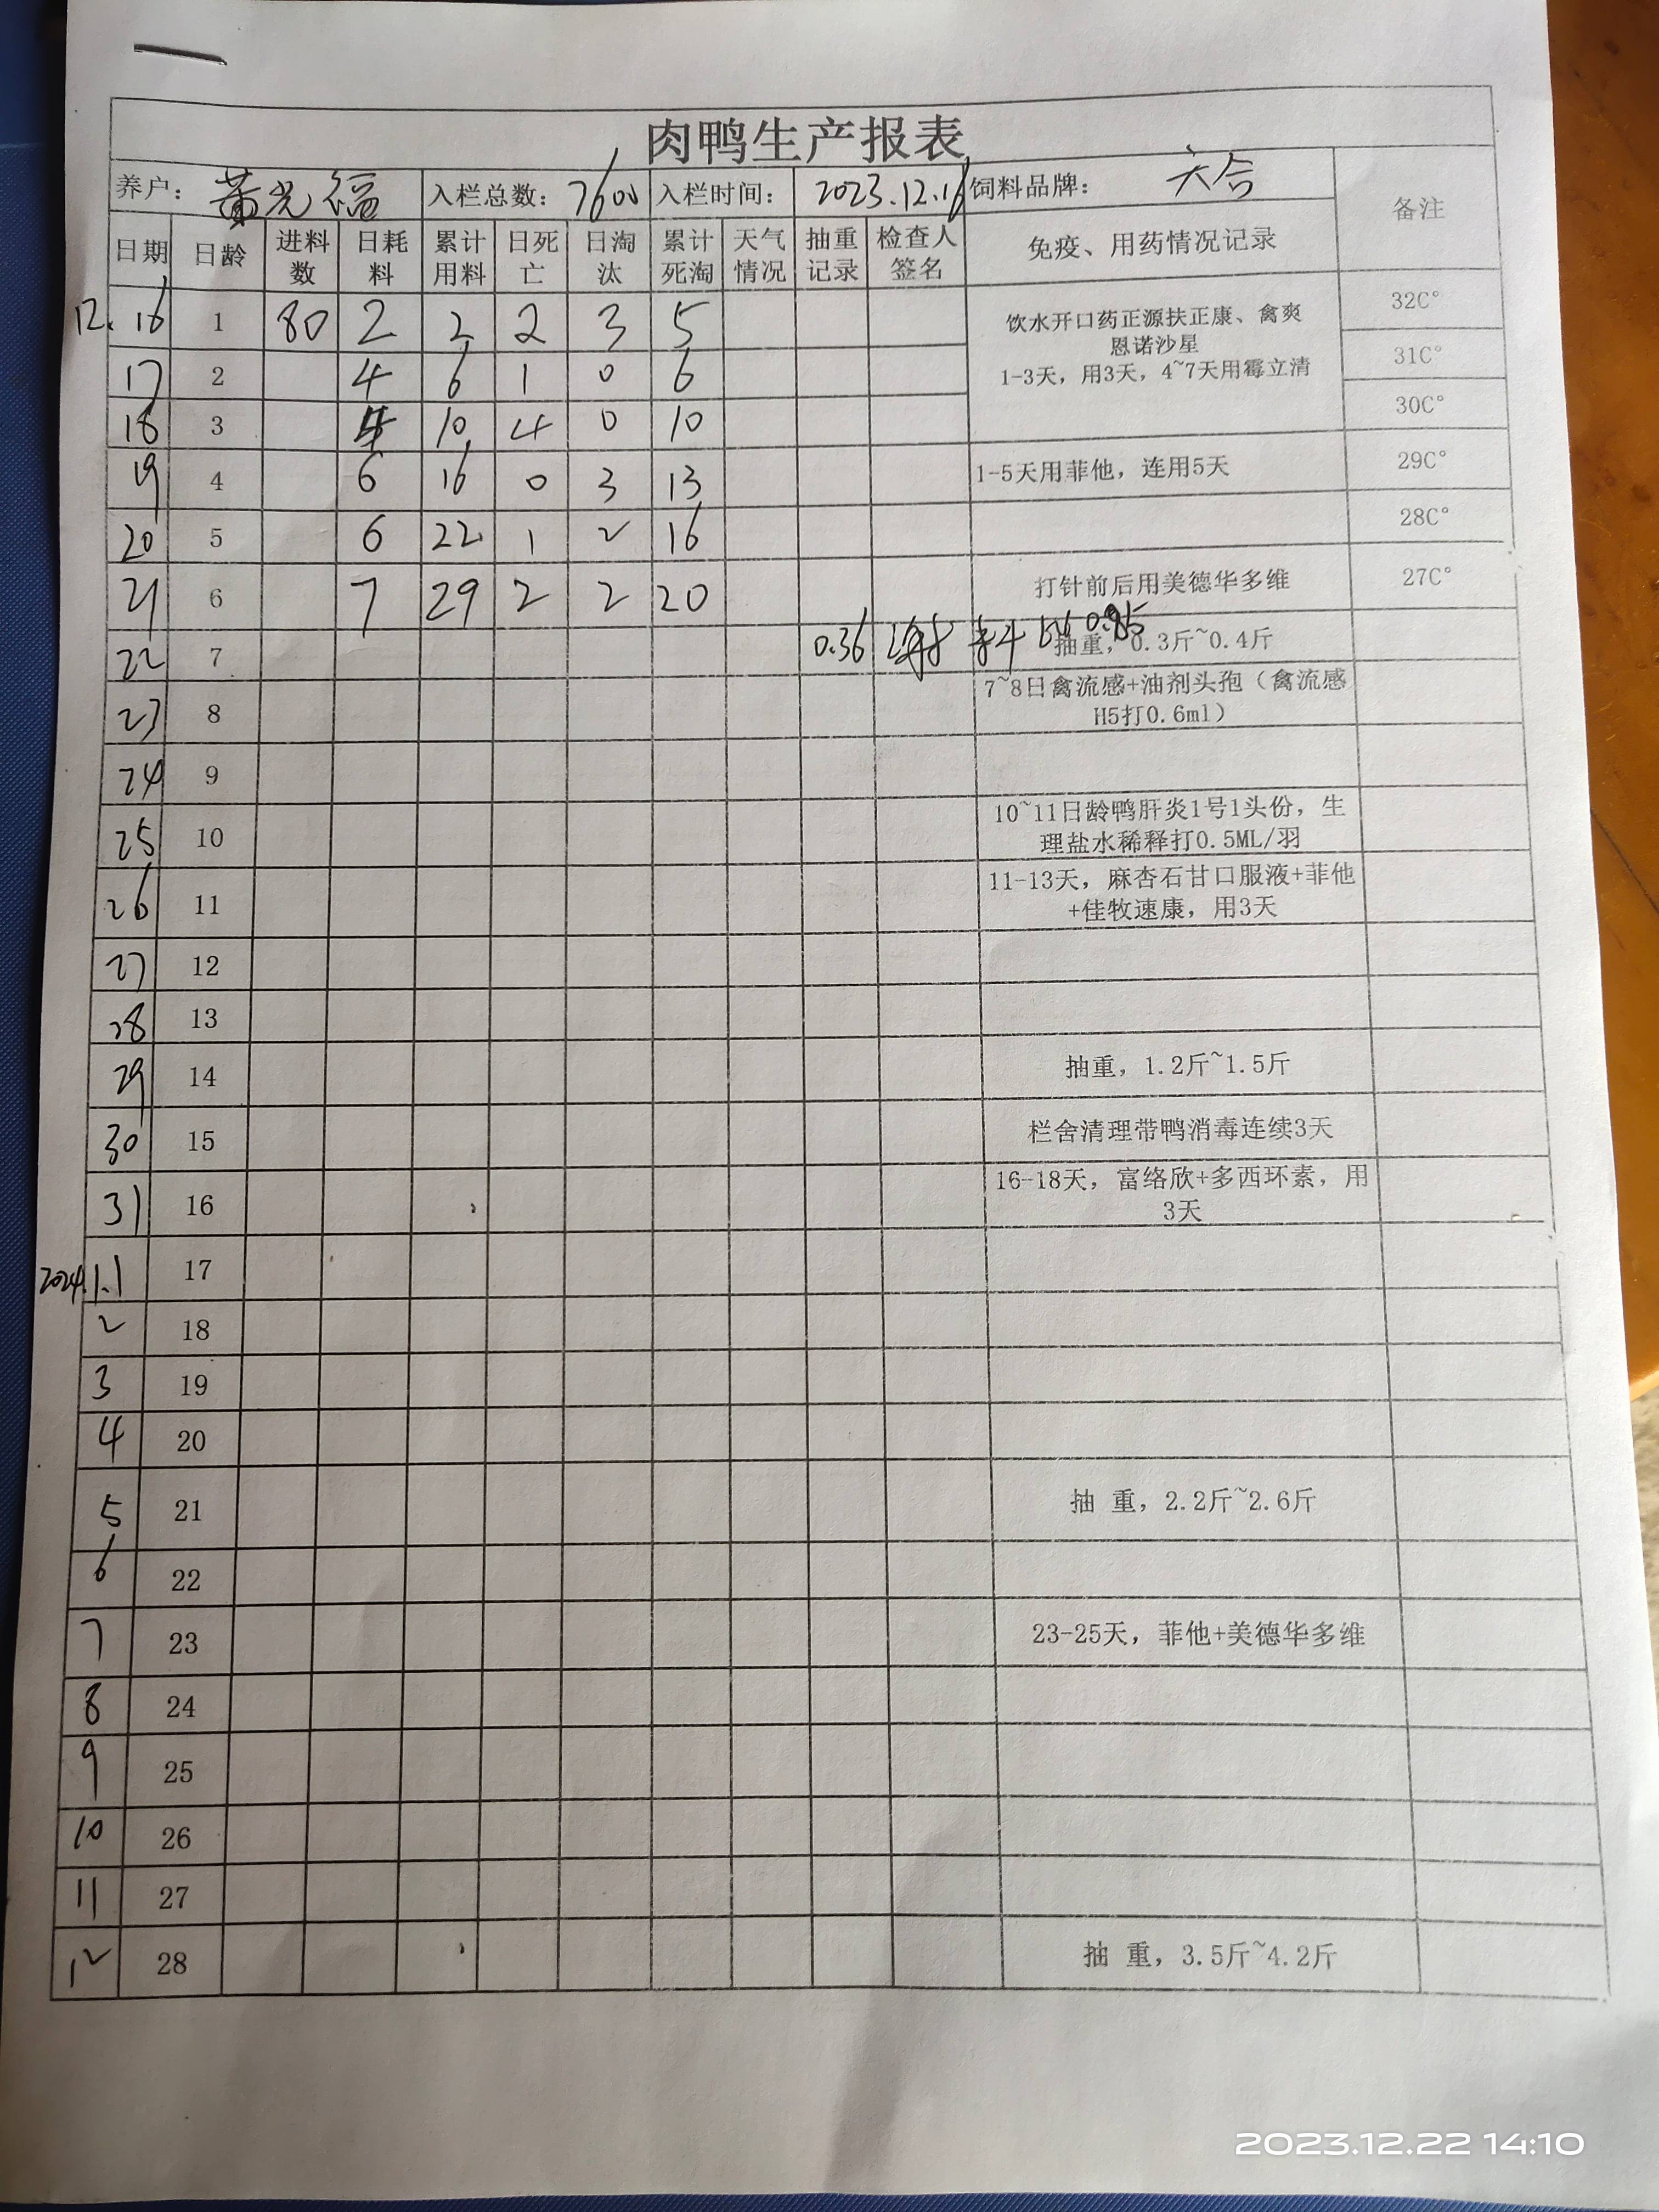 肉鸭生产报表
养户： 黄光福 入栏总数： 7600 入栏时间： 2023.12.16 饲料品牌： 六合 备注
日期 日龄 进料数 日耗料 累计用料 日死亡 日淘汰 累计死淘 天气情况 抽重记录 检查人签名 免疫、用药情况记录
12.16 1 80 2 2 2 3 5 饮水开口药正源扶正康、禽爽 32C°
恩诺沙星
17 2 4 6 1 0 6 1-3天，用3天，4~7天用霉立清 31C°
18 3 4 10 4 0 10 30C°
19 4 6 16 0 3 13 1-5天用菲他，连用5天 29C°
20 5 6 22 1 2 16 28C°
21 6 7 29 2 2 20 打针前后用美德华多维 27C°
22 7 0.36 抽重，0.3斤~0.4斤
23 8 7~8日禽流感+油剂头孢（禽流感
H5打0.6ml）
24 9
25 10 10~11日龄鸭肝炎1号1头份，生
理盐水稀释打0.5ML/羽
26 11 11-13天，麻杏石甘口服液+菲他
+佳牧速康，用3天
27 12
28 13
29 14 抽重，1.2斤~1.5斤
30 15 栏舍清理带鸭消毒连续3天
31 16 16-18天，富络欣+多西环素，用
3天
2024.1.1 17
2 18
3 19
4 20
5 21 抽 重，2.2斤~2.6斤
6 22
7 23 23-25天，菲他+美德华多维
8 24
9 25
10 26
11 27
12 28 抽 重，3.5斤~4.2斤
2023.12.22 14:10